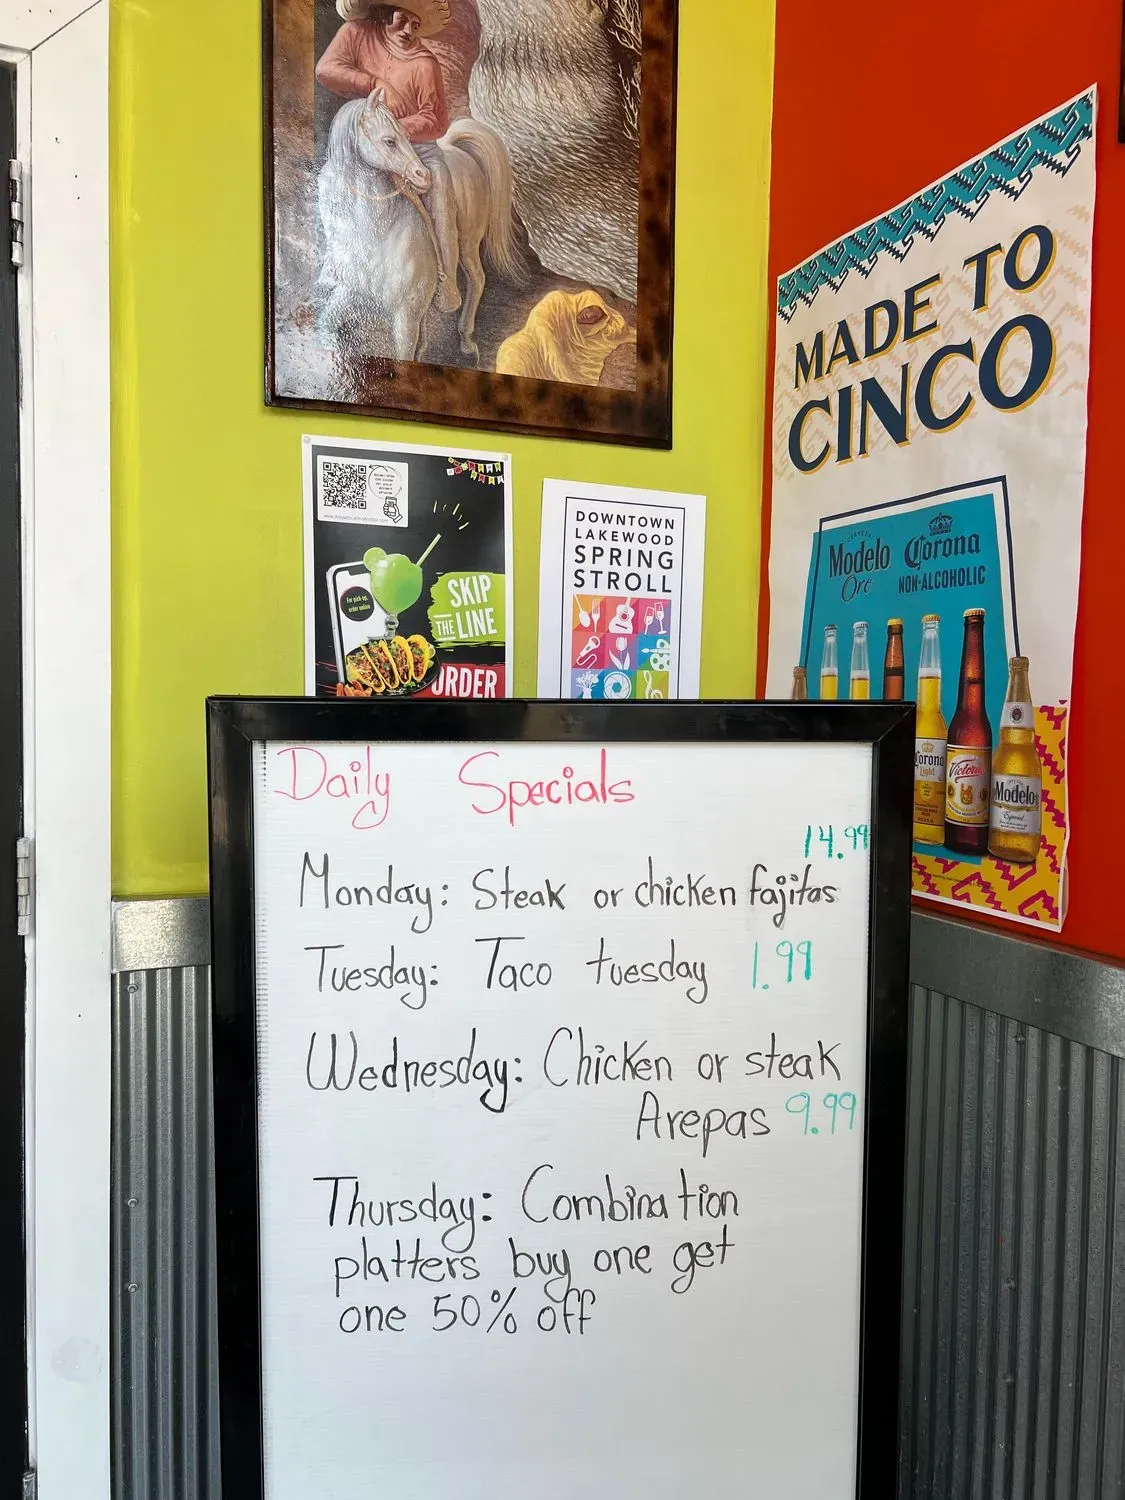 MADE TO
CINCO
CERVEZA
Modelo
Oro
Corona
NON-ALCOHOLIC
DOWNTOWN
LAKEWOOD
SPRING
STROLL
For pick-up,
order online
SKIP
THE LINE
ORDER
Corona
Light
Victoria
Modelo
Especial
Daily Specials
14.99
Monday: Steak or chicken fajitas
Tuesday: Taco tuesday 1.99
Wednesday: Chicken or steak
Arepas 9.99
Thursday: Combination
platters buy one get
one 50% off